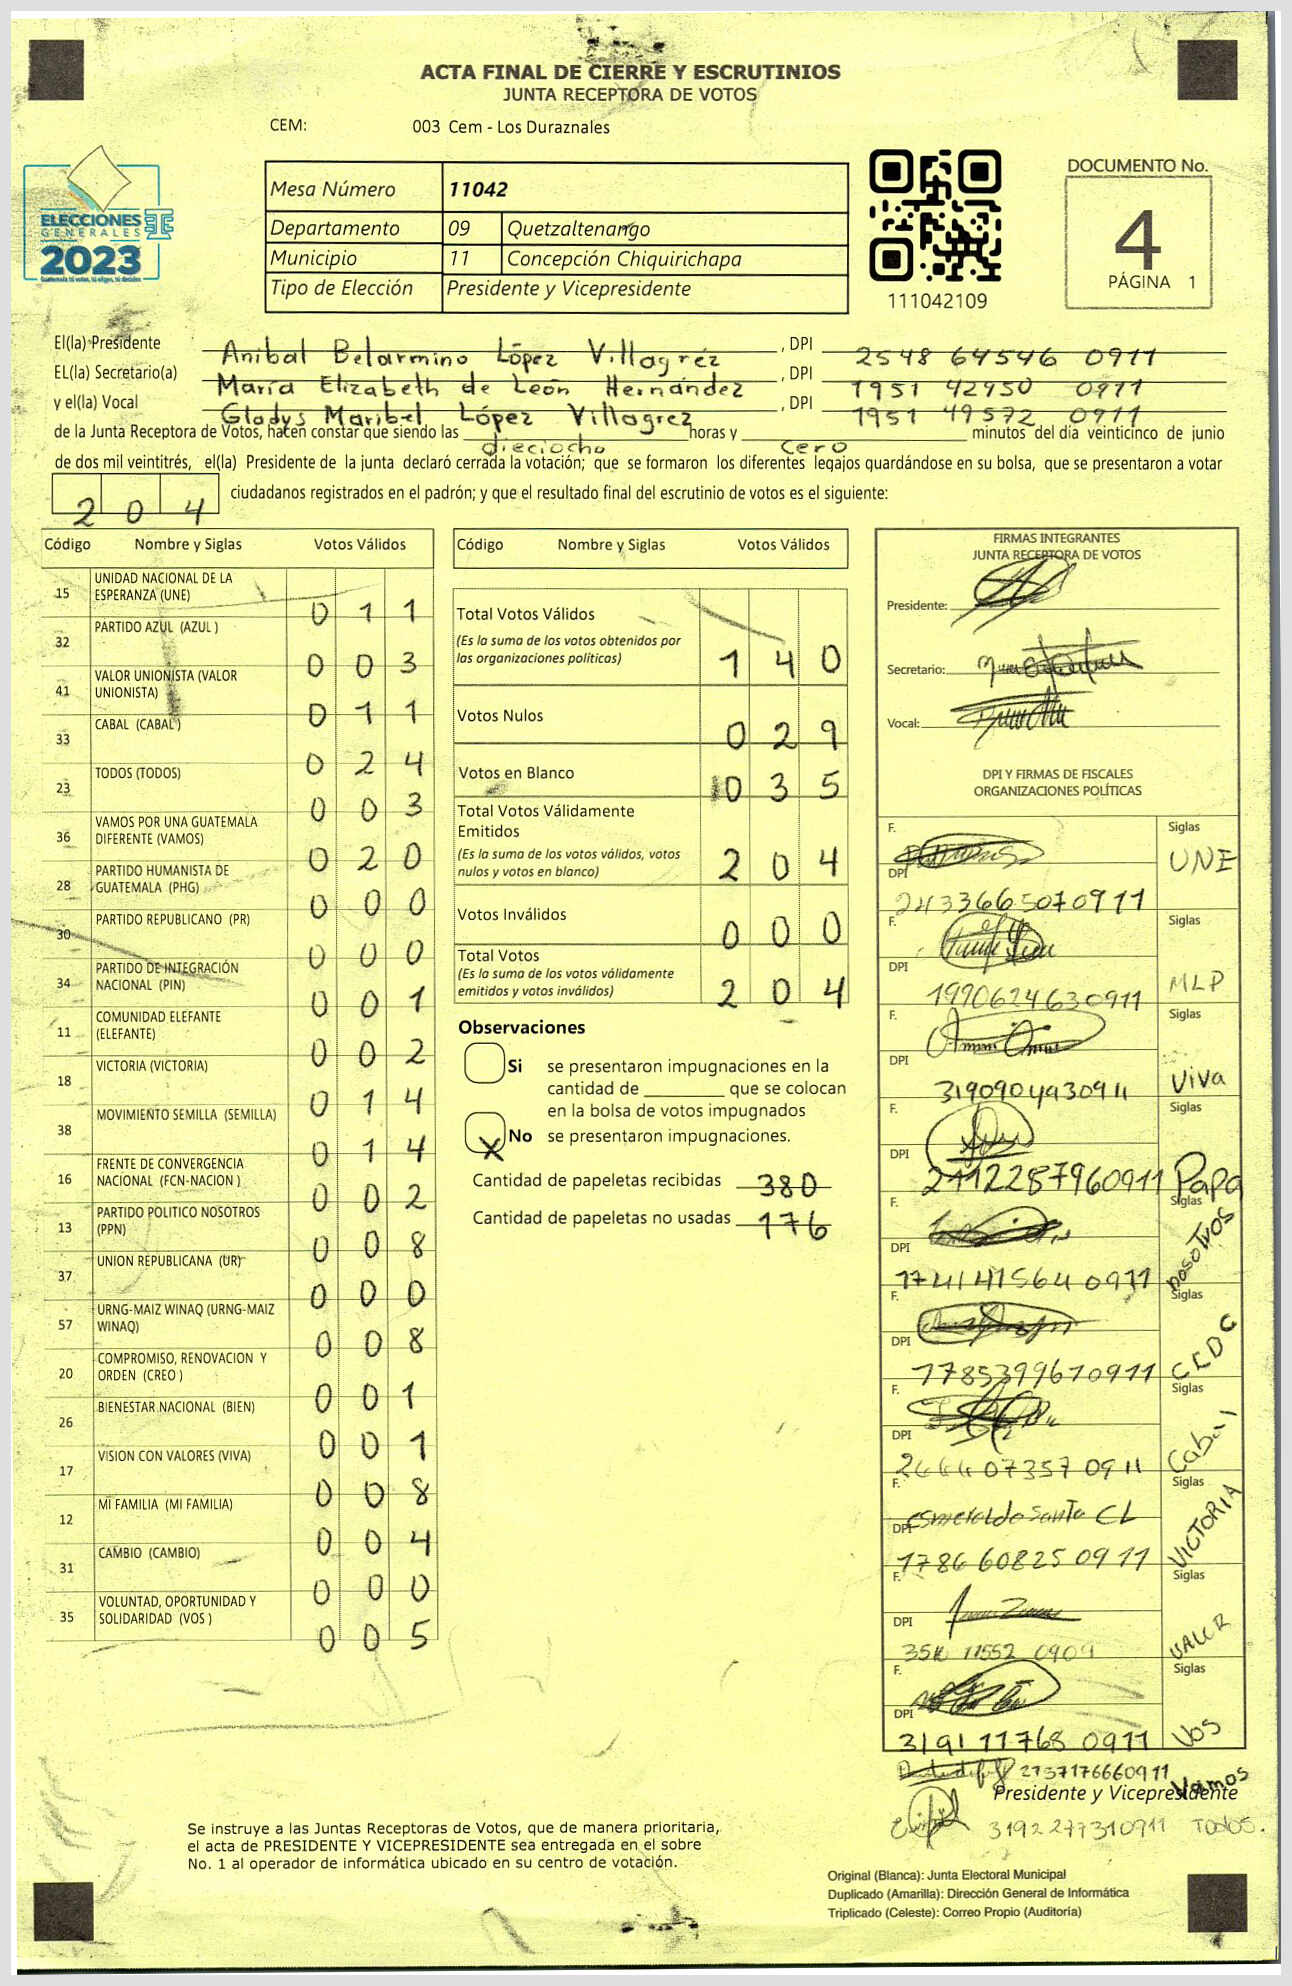 ACTA FINAL DE CIERRE Y ESCRUTINIOS
JUNTA RECEPTORA DE VOTOS
CEM: 003 Cem - Los Duraznales
ELECCIONES
GENERALES
2023
Mesa Número 11042
Departamento 09 Quetzaltenango
Municipio 11 Concepción Chiquirichapa
Tipo de Elección Presidente y Vicepresidente
111042109
DOCUMENTO No.
4
PÁGINA 1
El(la) Presidente Anibal Belarmino López Villagréz , DPI 2548 64546 0911
EL(la) Secretario(a) María Elizabeth de León Hernández , DPI 1951 42950 0911
y el(la) Vocal Gladys Maribel López Villagrez , DPI 1951 49572 0911
de la Junta Receptora de Votos, hacen constar que siendo las dieciocho horas y cero minutos del día veinticinco de junio
de dos mil veintitrés, el(la) Presidente de la junta declaró cerrada la votación; que se formaron los diferentes legajos guardándose en su bolsa, que se presentaron a votar
204 ciudadanos registrados en el padrón; y que el resultado final del escrutinio de votos es el siguiente:
Código Nombre y Siglas Votos Válidos
15 UNIDAD NACIONAL DE LA ESPERANZA (UNE) 011
32 PARTIDO AZUL (AZUL ) 003
41 VALOR UNIONISTA (VALOR UNIONISTA) 011
33 CABAL (CABAL ) 024
23 TODOS (TODOS) 003
36 VAMOS POR UNA GUATEMALA DIFERENTE (VAMOS) 020
28 PARTIDO HUMANISTA DE GUATEMALA (PHG) 000
30 PARTIDO REPUBLICANO (PR) 000
34 PARTIDO DE INTEGRACIÓN NACIONAL (PIN) 001
11 COMUNIDAD ELEFANTE (ELEFANTE) 002
18 VICTORIA (VICTORIA) 014
38 MOVIMIENTO SEMILLA (SEMILLA) 014
16 FRENTE DE CONVERGENCIA NACIONAL (FCN-NACION ) 002
13 PARTIDO POLITICO NOSOTROS (PPN) 008
37 UNION REPUBLICANA (UR) 000
57 URNG-MAIZ WINAQ (URNG-MAIZ WINAQ) 008
20 COMPROMISO, RENOVACION Y ORDEN (CREO ) 001
26 BIENESTAR NACIONAL (BIEN) 001
17 VISION CON VALORES (VIVA) 008
12 MI FAMILIA (MI FAMILIA) 004
31 CAMBIO (CAMBIO) 000
35 VOLUNTAD, OPORTUNIDAD Y SOLIDARIDAD (VOS ) 005
Código Nombre y Siglas Votos Válidos
Total Votos Válidos
(Es la suma de los votos obtenidos por
las organizaciones políticas) 140
Votos Nulos 029
Votos en Blanco 035
Total Votos Válidamente
Emitidos
(Es la suma de los votos válidos, votos
nulos y votos en blanco) 204
Votos Inválidos 000
Total Votos
(Es la suma de los votos válidamente
emitidos y votos inválidos) 204
Observaciones
Si se presentaron impugnaciones en la
cantidad de ________ que se colocan
en la bolsa de votos impugnados
X No se presentaron impugnaciones.
Cantidad de papeletas recibidas 380
Cantidad de papeletas no usadas 176
FIRMAS INTEGRANTES
JUNTA RECEPTORA DE VOTOS
Presidente:
Secretario:
Vocal:
DPI Y FIRMAS DE FISCALES
ORGANIZACIONES POLÍTICAS
F. Siglas
DPI UNE
2433665070911
F. Siglas
DPI MLP
1990624630911
F. Siglas
DPI Viva
3190904930911
F. Siglas
DPI
2112287960911 Papa
F. Siglas
DPI nosotros
1741415640911
F. Siglas
DPI
1785399670911
F. Siglas
DPI Cabal
2666407357 0911
F. Siglas
DPI Esmeralda Santa CL VICTORIA
1786 60825 0911
F. Siglas
DPI VALOR
11552 0909
F. Siglas
DPI VOS
3191 11768 0911
2737176660911 Vamos
Presidente y Vicepresidente
3192277310911 TODOS.
Se instruye a las Juntas Receptoras de Votos, que de manera prioritaria,
el acta de PRESIDENTE Y VICEPRESIDENTE sea entregada en el sobre
No. 1 al operador de informática ubicado en su centro de votación.
Original (Blanca): Junta Electoral Municipal
Duplicado (Amarilla): Dirección General de Informática
Triplicado (Celeste): Correo Propio (Auditoría)